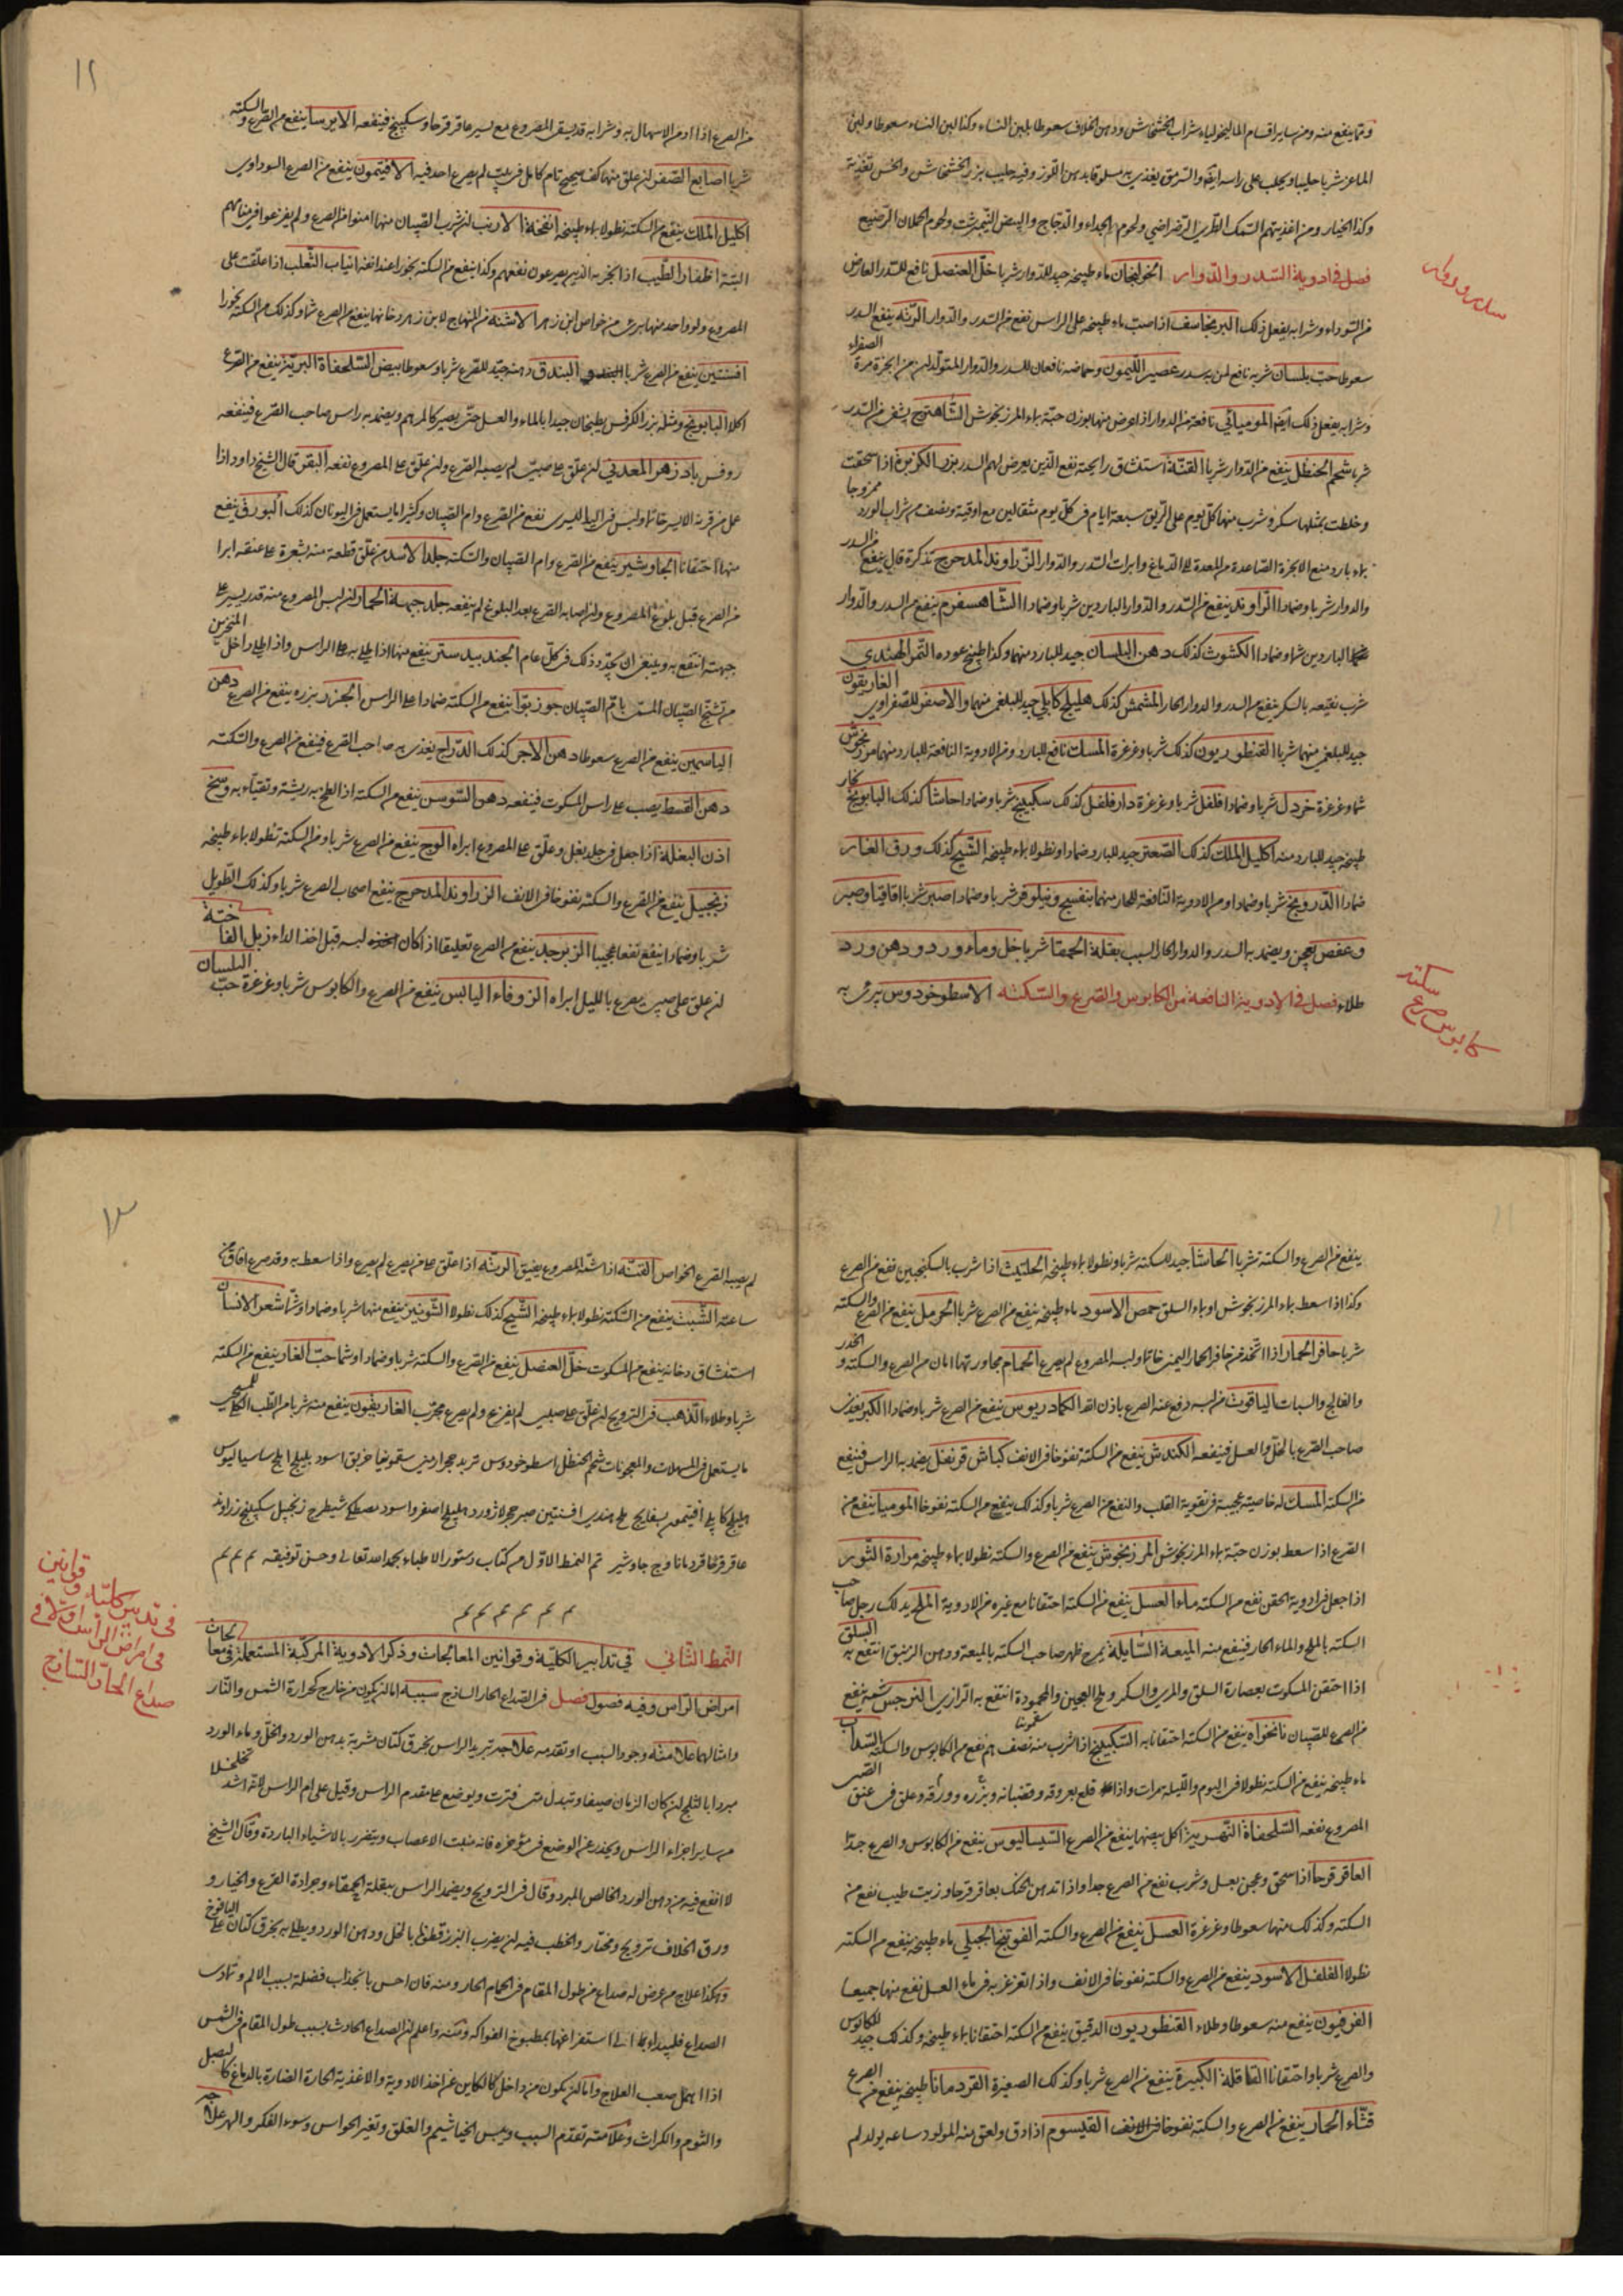 ومما ينفع منه ومن ساير اقسام الماليخولياء شراب الخشخاش ودهن الخلاف سعوطا بلبن النساء وكذا لبن النساء سعوطا ولبن
الماعز شربا حليبا ويحلب على راسه ايضا والسرمق يغذى به مسلوقا بدهن اللوز وفيه حليب بزر الخشخاش والخس تغذية
وكذا الخيار ومن اغذيتهم السمك الطري الرضراضي ولحوم الجداء والدجاج والبيض النيمبرشت ولحوم الحملان الرضيع
فصل في ادوية السدر والدوار الخولنجان ماء طبيخه جيد للدوار شربا خل العنصل نافع للسدر العارض
سدر ودوار
من السوداء وشرابه يفعل ذلك البرنجاسف اذا صب ماء طبيخه على الراس نفع من السدر والدوار الرته ينفع السدر
سعوطا حب بلسان شربه نافع لمن به سدر عصير الليمون وحماضه نافعان للسدر والدوار المتولدين من ابخرة مرة الصفراء
وشرابه يفعل ذلك ايضا الموميائي نافعة من الدوار اذا عوض منها بوزن حبة بماء المرزنجوش الشاهترج ينفع من السدر
شربا شحم الحنظل ينفع من الدوار شربا القنة استنشاق رايحته نفع الذين يعرض لهم السدر بزر الكزبرة اذا سحقت
وخلطت بمثلها سكر وشرب منها كل يوم على الريق سبعة ايام في كل يوم مثقالين مع اوقية ونصف من شراب الورد ممزوجا
بماء بارد منع الابخرة الصاعدة من المعدة الى الدماغ وابرات السدر والدوار الزراوند المدحرج تذكرة قال ينفع من السدر
والدوار شربا وضمادا الراوند ينفع من السدر والدوار الباردين شربا وضمادا الشاهسفرم ينفع من السدر والدوار
الباردين شما وضمادا الكشوث كذلك دهن البلسان جيد للبارد منهما وكذا طبيخ عوده التمر الهندي
شرب نقيعه بالسكر ينفع من السدر والدوار الحار المشمش كذلك هليلج كابلي جيد للبلغمي منهما والاصفر للصفراوي الغاريقون
جيد للبلغمي منهما شربا القنطوريون كذلك شربا وغرغرة المسك نافع للبارد ومن الادوية النافعة للبارد منهما مرزنجوش
شما وغرغرة خردل شربا وضمادا فلفل شربا وغرغرة دار فلفل كذلك سكبينج شربا وضمادا حاشا كذلك البابونج
طبيخه جيد للبارد منه اكليل الملك كذلك الصعتر جيد للبارد ضمادا ونطولا بماء طبيخه الشيح كذلك ورق الغار
ضمادا الدرونج شربا وضمادا ومن الادوية النافعة للحار منهما بنفسج ونيلوفر شربا وضمادا صبر شربا اقاقيا وصبر
وعفص يعجن ويضمد به السدر والدوار الحار السبب بقلة الحمقا شربا خل وماء ورد ودهن ورد
طلاء فصل في الادوية النافعة من الكابوس والصرع والسكتة الاسطوخودوس يبرئ به
سكته
صرع
كابوس
١٢
من الصرع اذا ادمن الاسهال به وشرابه قد يسقى المصروع مع يسير عاقرقرحا وسكبينج فينفعه الايرسا ينفع من الصرع والسكته
شربا اصابع الصفر ان علق منها كف صحيح تام كامل في بيت لم يصرع احد فيه الافتيمون ينفع من الصرع السوداوي
اكليل الملك ينفع من السكته نطولا بماء طبيخه انفحة الارنب ان شرب الصبيان منها امنوا من الصرع ولم يفزعوا في منامهم
البتة اظفار الطيب اذا بخر به الذين يصرعون نفعهم وكذا ينفع من السكته بخورا عند انفه انياب الثعلب اذا علقت على
المصروع ولو واحد منها برئ من خواص ابن زهر الاشنه من المنهاج لابن زهر دخانها ينفع من الصرع شما وكذلك من السكتة بخورا
افسنتين ينفع من الصرع شربا البندق دهنه جيد للصرع شربا وسعوطا بيض السلحفاة البرية ينفع من الصرع
اكلا البابونج ومثله بزر الكرفس يطبخان جيدا بالماء والعسل حتى يصير كالمرهم ويضمد به راس صاحب الصرع فينفعه
روفس بادزهر المعدني ان علق على صبي لم يصبه الصرع وان علق على المصروع نفعه البقر قال الشيخ داود اذا
عمل من قرنه الايسر خاتما ولبس في اليد اليسرى نفع من الصرع وام الصبيان وكثيرا ما يستعمل في اليونان كذلك البورق ينفع
منها احتقانا الجاوشير ينفع من الصرع وام الصبيان والسكته جلد الاسد من علق قطعة منه بشعره على عنقه ابرا
من الصرع قبل بلوغ المصروع وان اصابه الصرع بعد البلوغ لم ينفعه جلد جبهة الحمار ان لبس المصروع منه قدر يسير على
جبهته انتفع به وينبغي ان يجدد ذلك في كل عام الجندبيدستر ينفع منها اذا طلي به على الراس واذا طلي داخل المنخرين
من تشنج الصبيان المسمى بام الصبيان جوز بوا ينفع من السكته ضمادا على الراس الجزر بزره ينفع من الصرع دهن
الياسمين ينفع من الصرع سعوطا دهن الاجر كذلك الدراج يغذى به صاحب الصرع فينفع من الصرع والسكته
دهن القسط يصب على راس المسكوت فينفعه دهن السوسن ينفع من السكته اذا لطخ به ريشة وتقيأ به وسخ
اذن البغلة اذا جعل في جلد بغل وعلق على المصروع ابراه الوج ينفع من الصرع شربا ومن السكتة نطولا بماء طبيخه
زنجبيل ينفع من الصرع والسكته نفوخا في الانف الزراوند المدحرج ينفع اصحاب الصرع شربا وكذلك الطويل
شربا وضمادا ينفع نفعا عجيبا الزبرجد ينفع من الصرع تعليقا اذ اكان لبسه قبل اخذ الداء زبل الفاختة
ان علق على صبي يصرع بالليل ابراه الزوفاء اليابس ينفع من الصرع والكابوس شربا وغرغرة حب البلسان
ينفع من الصرع والسكتة شربا الحاشا جيد للسكته شربا ونطولا بماء طبيخه الحلتيت اذا شرب بالسكنجبين نفع من الصرع
وكذا اذا سعط بماء المرزنجوش او بماء السلق حمص الاسود ماء طبيخه ينفع من الصرع شربا الحرمل ينفع من الصرع والسكته
شربا حافر الحمار اذا اتخذ من حافر الحمار اليمنى خاتما ولبسه المصروع لم يصرع الحمام مجاورتها امان من الصرع والسكته والخدر
والفالج والسبات الياقوت من لبسه دفع عنه الصرع باذن الله الكمادريوس ينفع من الصرع شربا وضمادا الكبر يغذى
صاحب الصرع بالخل والعسل فينفعه الكندش ينفع من السكتة نفوخا في الانف كباش قرنفل يضمد به الراس فينفع
من السكتة المسك له خاصيته عجيبة في تقوية القلب والنفع من الصرع شربا وكذلك ينفع من السكته نفوخا الموميا ينفع من
الصرع اذا سعط بوزن حبة بماء المرزنجوش المرزنجوش ينفع من الصرع والسكته نطولا بماء طبيخه مرارة الثور
اذا جعل في ادوية الحقن نفع من السكته ماء العسل ينفع من السكتة احتقانا مع غيره من الادوية الملح يدلك رجل صاحب
السكته بالملح والماء الحار فينفع منه الميعة السايلة يمرخ ظهر صاحب السكته بالميعة ودهن الزنبق انتفع به السلق
اذا احتقن المسكوت بعصارة السلق والمري والسكر وملح العجين والمحمودة انتفع به الرازي النرجس شمه ينفع
من الصرع للصبيان نانخواه ينفع من السكتة احتقانا به السكبينج اذا شرب منه نصف درهم نفع من الكابوس والسكته السذاب
ماء طبيخه ينفع من السكته نطولا في اليوم والليلة مرات واذا قلع بعروقه وقضبانه وبزره وورقه وعلق في عنق الصبي
المصروع نفعه السلحفاة النهرية اكل بيضها ينفع من الصرع السيساليوس ينفع من الكابوس والصرع جدا
العاقرقرحا اذا سحق وعجن بعسل وشرب نفع من الصرع جدا واذا تدهن الحنك بعاقرقرحا وزيت طيب نفع من
السكته وكذلك منها سعوطا وغرغرة العسل ينفع من الصرع والسكته الفوتنج الجبلي ماء طبيخه ينفع من السكته
نطولا الفلفل الاسود ينفع من الصرع والسكته نفوخا في الانف واذا تغرغر به في ماء العسل نفع منها جميعا
الفرفيون ينفع منه سعوطا وطلاء القنطوريون الدقيق ينفع من السكته احتقانا بماء طبيخه وكذلك جيد للكابوس
والصرع شربا واحتقانا القاقلة الكبيرة ينفع من الصرع شربا وكذلك الصغيرة القردمانا طبيخه ينفع من الصرع
قثاء الحمار ينفع من الصرع والسكته نفوخا في الانف القيسوم اذا دق ولعق منه المولود ساعة يولد لم
١٣
لم يصبه الصرع الخواص القنه اذا شمه المصروع يفيق الرته اذا علق على من يصرع لم يصرع واذا سعط به وقد صرع افاق من
ساعته الشبث ينفع من السكته نطولا بماء طبيخه الشيح كذلك نطولا الشونيز ينفع منها شربا وضمادا وشما شعر الانسان
استنشاق دخانه ينفع من المسكوت خل العنصل ينفع من الصرع والسكته شربا وضمادا وشما حب الغار ينفع من السكته
شربا وطلاء الذهب في الترويح ان علق على صبي لم يفزع ولم يصرع مجرب الغاريقون ينفع منه شربا من الطب الكلي للمسيحي
ما يستعمل في المسهلات والمعجونات شحم الحنظل اسطوخودوس تربد حجر ارمني سقمونيا خربق اسود بليلج املج ساسياليوس
هليلج كابلي افتيمون بسفايج ملح هندي افسنتين صبر حجر لازورد هليلج اصفر واسود مصطكي شيطرج زنجبيل سكبينج زراوند
عاقرقرحا قردمانا وج جاوشير تم النمط الاول من كتاب دستور الاطباء بحمد الله تعالى وحسن توفيقه م م م
م م م م م م
النمط الثاني في تدابير الكلية وقوانين المعالجات وذكر الادوية المركبة المستعملة في معالجات
قوانين
في تدبير كلية و
في امراض الراس
صداع الحار الساذج
امراض الراس وفيه فصول فصل في الصداع الحار الساذج سببه اما ان يكون من خارج كحرارة الشمس والنار
وامثالهما علامته وجود السبب او تقدمه علاجه تبريد الراس بخرق كتان مشربة بدهن الورد والخل وماء الورد
مبردا بالثلج ان كان الزمان صيفا وتبدل متى فترت ويوضع على مقدم الراس وقيل على ام الراس لانه اشد تخلخلا
من ساير اجزاء الراس ويحذر عن الوضع في مؤخره فانه منبت الاعصاب ويتضرر بالاشياء الباردة وقال الشيخ
لا انفع فيه من دهن الورد الخالص المبرد وقال في الترويح ويضمد الراس ببقلة الحمقاء وجرادة القرع والخيار و
ورق الخلاف ترويح ومختار والخطب فيه ان يضرب البزرقطونا بالخل ودهن الورد ويطلى به بخرق كتان على اليافوخ
وهكذا علاج من عرض له صداع من طول المقام في الحمام الحار ومنه فان احس بانجذاب فضلة بسبب الالم وتمادى
الصداع فليبدا الى استفراغها بمطبوخ الفواكه ومنه واعلم ان الصداع الحادث بسبب طول المقام في الشمس
اذا اهمل صعب العلاج واما ان يكون من داخل كالكاين عن اخذ الادوية والاغذية الحارة الضارة بالدماغ كالبصل
والثوم والكراث وعلامته تقدم السبب ويبس الخياشيم والقلق وتغير الحواس وسوء الفكر والسهر علاجه